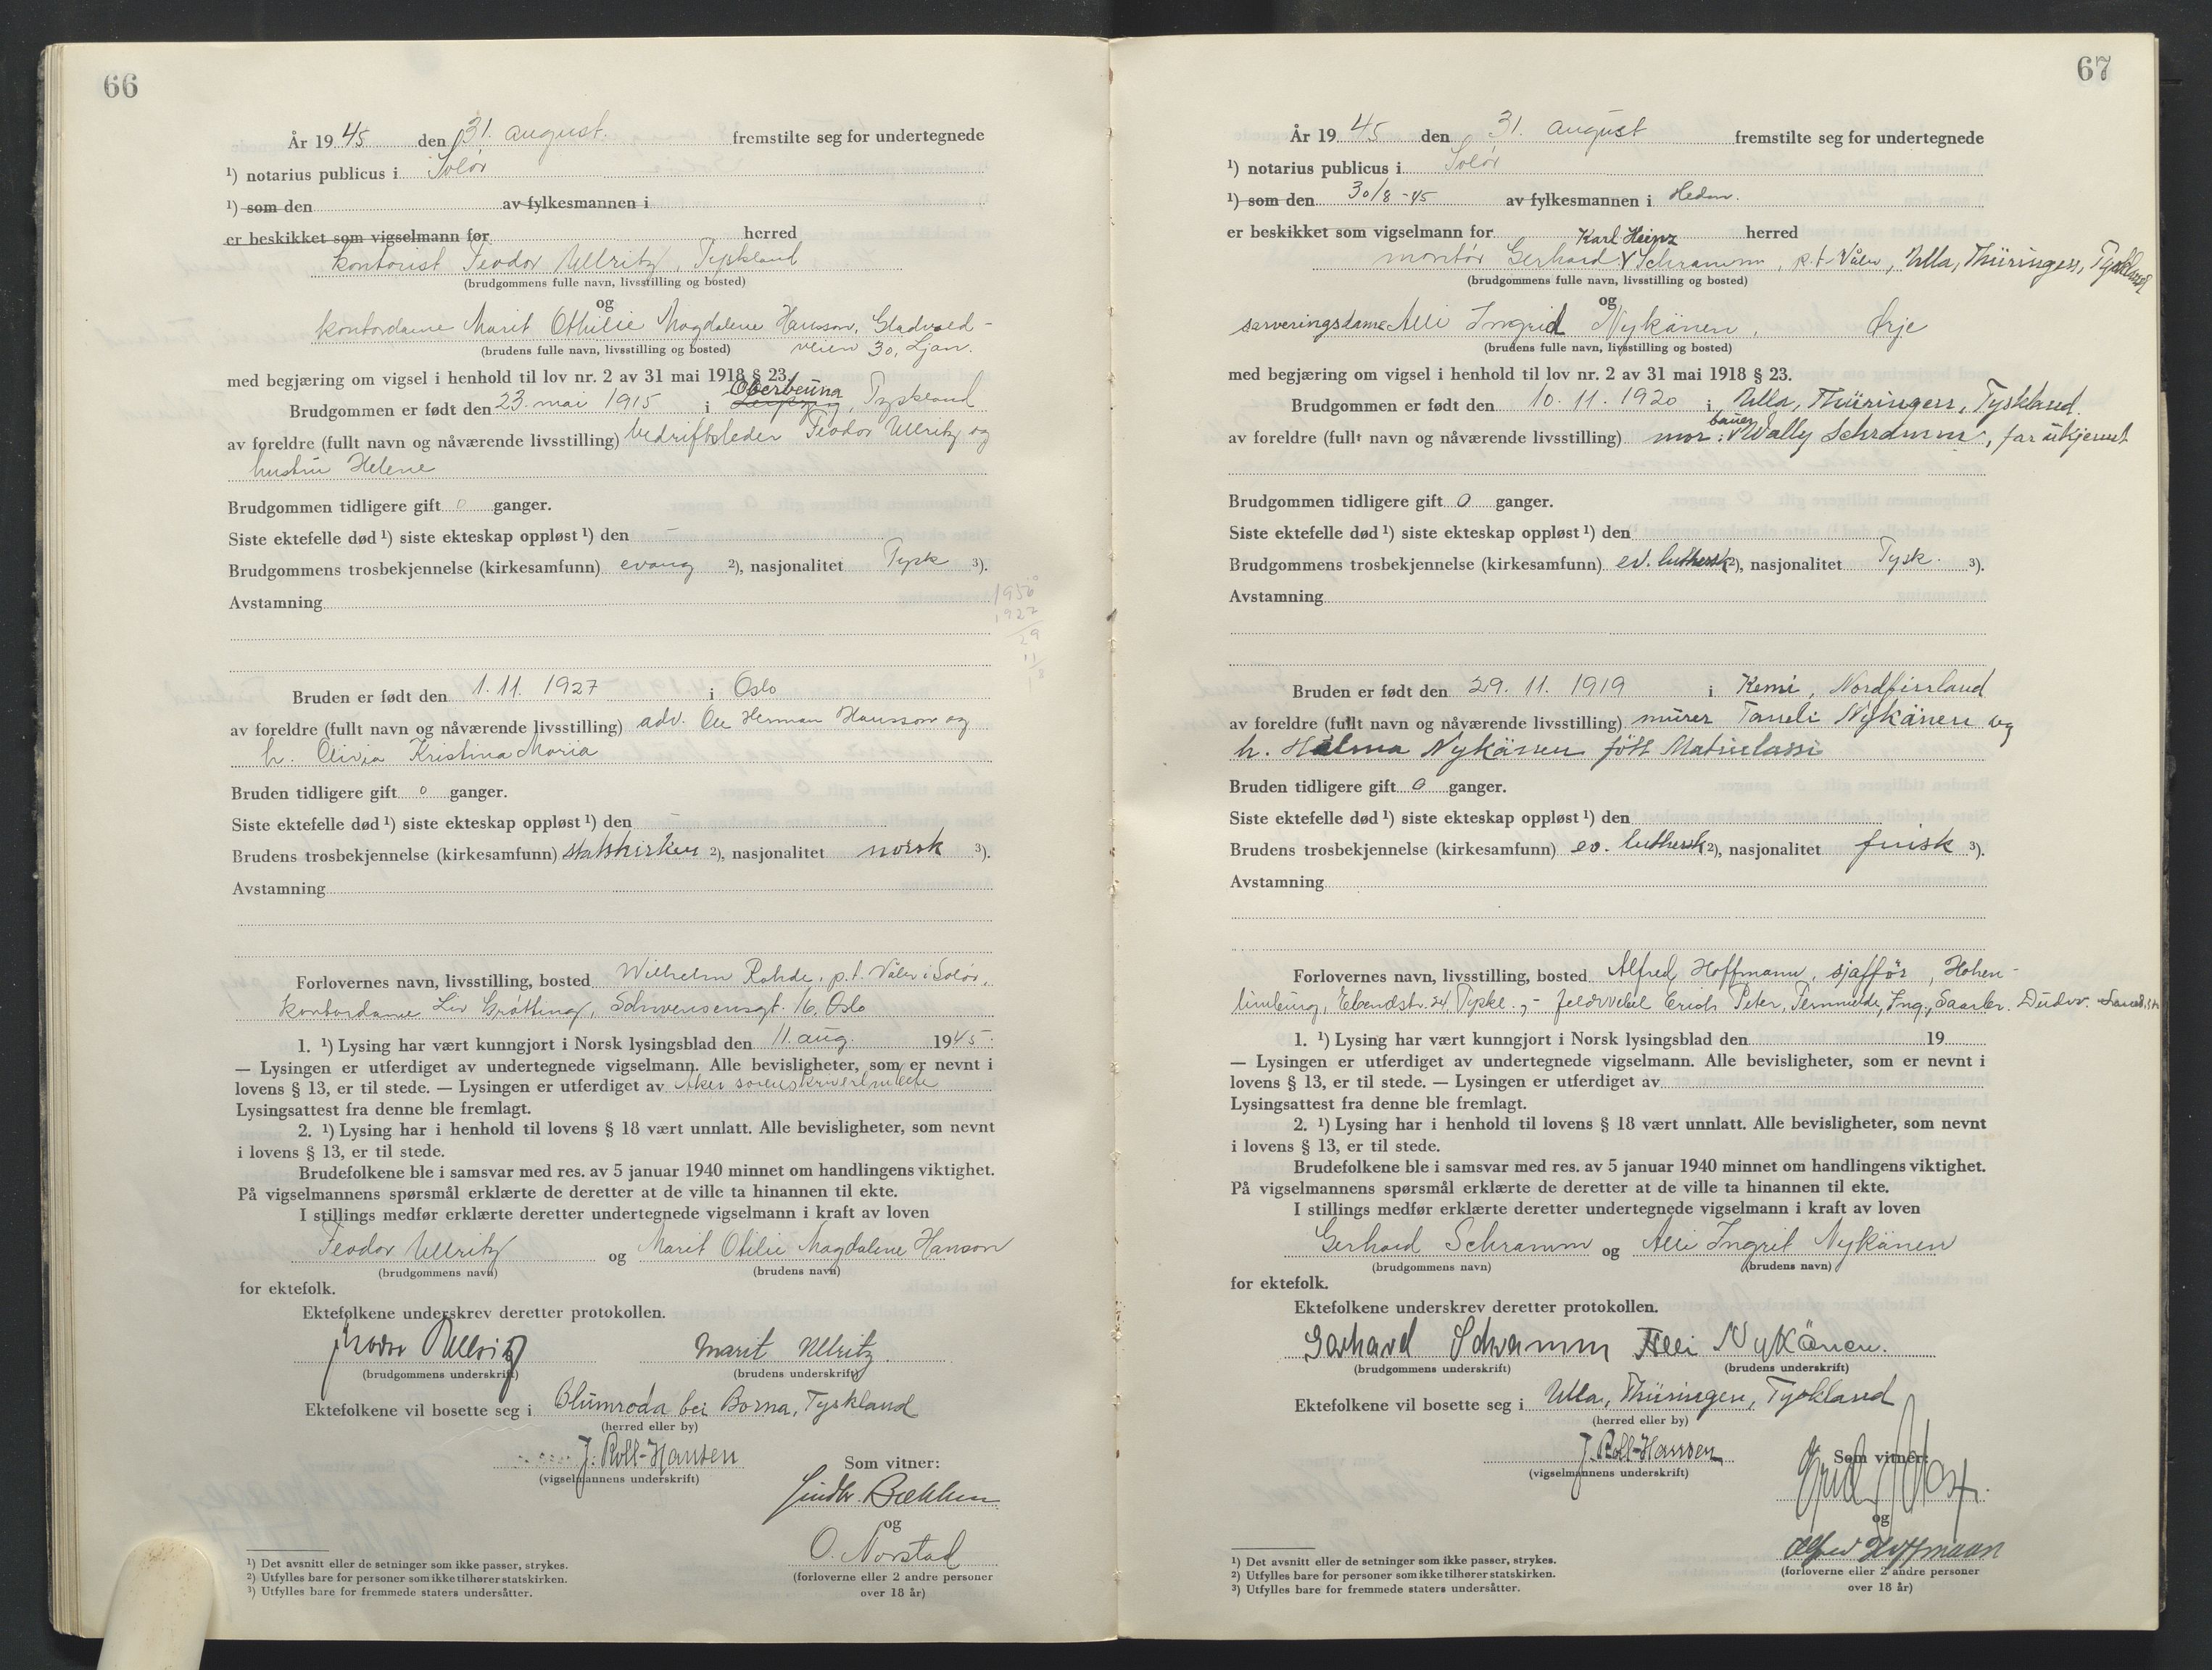 66
År 1945 den 31. august. fremstilte seg for undertegnede
¹) notarius publicus i Solør
¹) som den av fylkesmannen i
er beskikket som vigselmann for herred
kontorist Teodor Ullritz, Tyskland
(brudgommens fulle navn, livsstilling og bosted)
og
kontordame Marit Othilie Magdalene Hansson, Gladvold-
(brudens fulle navn, livsstilling og bosted) veien 30, Ljan.
med begjæring om vigsel i henhold til lov nr. 2 av 31 mai 1918 § 23.
Oberbeuna
Brudgommen er født den 23. mai 1915 i Leipzig, Tyskland
av foreldre (fullt navn og nåværende livsstilling) bedriftsleder Teodor Ullritz og
hustru Helene
Brudgommen tidligere gift 0 ganger.
Siste ektefelle død ¹) siste ekteskap oppløst ¹) den –
Brudgommens trosbekjennelse (kirkesamfunn) evang ²), nasjonalitet Tysk ³).
Avstamning
1927
29
11
Bruden er født den 1. 11. 1927 i Oslo
av foreldre (fullt navn og nåværende livsstilling) adv. Ole Herman Hansson og
h. Olivia Kristina Maria
Bruden tidligere gift 0 ganger.
Siste ektefelle død ¹) siste ekteskap oppløst ¹) den –
Brudens trosbekjennelse (kirkesamfunn) statskirken ²), nasjonalitet norsk ³).
Avstamning
Forlovernes navn, livsstilling, bosted Wilhelm Rohde, p.t. Våler i Solør,
kontordame Liv Grøtting, Schwensensgt. 16, Oslo
1. ¹) Lysing har vært kunngjort i Norsk lysingsblad den 11. aug. 1945.
— Lysingen er utferdiget av undertegnede vigselmann. Alle bevisligheter, som er nevnt i
lovens § 13, er til stede. — Lysingen er utferdiget av Aker sorenskriverembete
Lysingsattest fra denne ble fremlagt.
2. ¹) Lysing har i henhold til lovens § 18 vært unnlatt. Alle bevisligheter, som nevnt
i lovens § 13, er til stede.
Brudefolkene ble i samsvar med res. av 5 januar 1940 minnet om handlingens viktighet.
På vigselmannens spørsmål erklærte de deretter at de ville ta hinannen til ekte.
I stillings medfør erklærte deretter undertegnede vigselmann i kraft av loven
Teodor Ullritz og Marit Otilie Magdalene Hanson
(brudgommens navn) (brudens navn)
for ektefolk.
Ektefolkene underskrev deretter protokollen.
Ullritz Marit Ullritz.
(brudgommens underskrift) (brudens underskrift)
Ektefolkene vil bosette seg i Blumroda bei Borna, Tyskland
(herred eller by)
J. Roll-Hansen Som vitner:
(vigselmannens underskrift)
Bækken
og
O. Norstad
(forloverne eller 2 andre personer
over 18 år)
¹) Det avsnitt eller de setninger som ikke passer, strykes.
²) Utfylles bare for personer som ikke tilhører statskirken.
³) Utfylles bare for fremmede staters undersåtter.
67
År 1945 den 31. august fremstilte seg for undertegnede
¹) notarius publicus i Solør
¹) som den 30/8-45 av fylkesmannen i Hedm.
er beskikket som vigselmann for herred
Karl Heinz
montør Gerhard Schramm, p.t. Våler, Ulla, Thüringen, Tyskland
(brudgommens fulle navn, livsstilling og bosted)
og
serveringsdame Alli Ingrid Nykänen, Ørje
(brudens fulle navn, livsstilling og bosted)
med begjæring om vigsel i henhold til lov nr. 2 av 31 mai 1918 § 23.
Brudgommen er født den 10. 11. 1920 i Ulla, Thüringen, Tyskland.
av foreldre (fullt navn og nåværende livsstilling) mor: Wally Schramm, far ukjennt
Brudgommen tidligere gift 0 ganger.
Siste ektefelle død ¹) siste ekteskap oppløst ¹) den
Brudgommens trosbekjennelse (kirkesamfunn) ev. luthersk ²), nasjonalitet Tysk. ³).
Avstamning
Bruden er født den 29. 11. 1919 i Kemi, Nordfinnland
av foreldre (fullt navn og nåværende livsstilling) murer Taneli Nykänen og
h. Halma Nykänen født
Bruden tidligere gift 0 ganger.
Siste ektefelle død ¹) siste ekteskap oppløst ¹) den
Brudens trosbekjennelse (kirkesamfunn) ev. luthersk ²), nasjonalitet finsk ³).
Avstamning
Forlovernes navn, livsstilling, bosted Alfred Hoffmann, sjaffør, Hohen-
limburg, 24, Tyskl., – feldwebel Erich Peter, Ing., Saarbr.
1. ¹) Lysing har vært kunngjort i Norsk lysingsblad den 19
— Lysingen er utferdiget av undertegnede vigselmann. Alle bevisligheter, som er nevnt i
lovens § 13, er til stede. — Lysingen er utferdiget av
Lysingsattest fra denne ble fremlagt.
2. ¹) Lysing har i henhold til lovens § 18 vært unnlatt. Alle bevisligheter, som nevnt
i lovens § 13, er til stede.
Brudefolkene ble i samsvar med res. av 5 januar 1940 minnet om handlingens viktighet.
På vigselmannens spørsmål erklærte de deretter at de ville ta hinannen til ekte.
I stillings medfør erklærte deretter undertegnede vigselmann i kraft av loven
Gerhard Schramm og Alli Ingrit Nykänen
(brudgommens navn) (brudens navn)
for ektefolk.
Ektefolkene underskrev deretter protokollen.
Gerhard Schramm Alli Nykänen.
(brudgommens underskrift) (brudens underskrift)
Ektefolkene vil bosette seg i Ulla, Thüringen, Tyskland
(herred eller by)
J. Roll-Hansen Som vitner:
(vigselmannens underskrift)
og
Alfred Hoffmann
(forloverne eller 2 andre personer
over 18 år)
¹) Det avsnitt eller de setninger som ikke passer, strykes.
²) Utfylles bare for personer som ikke tilhører statskirken.
³) Utfylles bare for fremmede staters undersåtter.